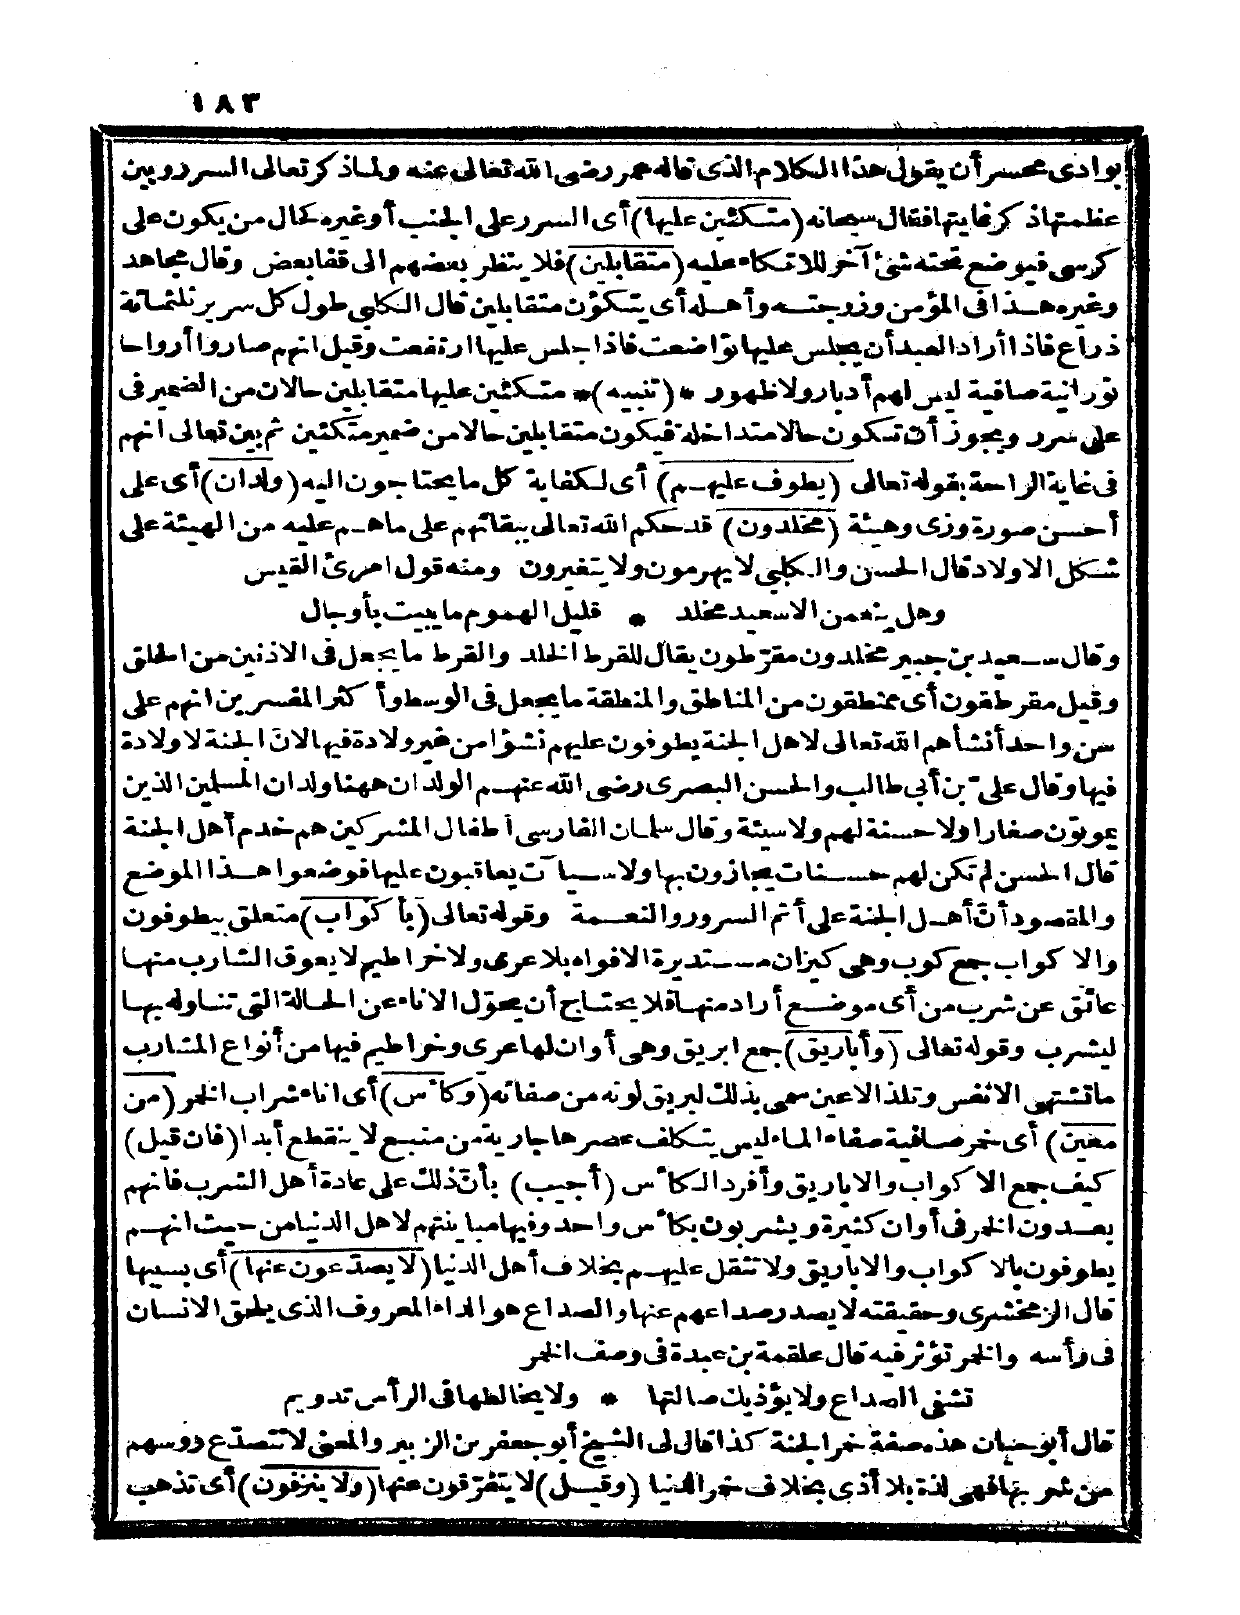 ١٨٣
بوادى محسر أن يقول هذا الكلام الذى قاله عمر رضى الله تعالى عنه ولما ذكر تعالى السرر وبين
عظمتها ذكر غايتها فقال سبحانه (متكئين عليها) أى السرر على الجنب أو غيره كحال من يكون على
كرسى فيوضع تحته شئ آخر للاتكاء عليه (متقابلين) فلا ينظر بعضهم الى قفا بعض وقال مجاهد
وغيره هذا فى المؤمن وزوجته وأهله أى يتكؤن متقابلين قال الكلبى طول كل سرير ثلثمائة
ذراع فاذا أراد العبد أن يجلس عليها تواضعت فاذا جلس عليها ارتفعت وقيل انهم صاروا أرواحا
نورانية صافية ليس لهم أدبار ولا ظهور * (تنبيه) * متكئين عليها متقابلين حالان من الضمير فى
على سرر ويجوز أن تكون حالا متداخلة فيكون متقابلين حالا من ضمير متكئين ثم بين تعالى انهم
فى غاية الراحة بقوله تعالى (يطوف عليهم) أى لكفاية كل ما يحتاجون اليه (ولدان) أى على
أحسن صورة وزى وهيئة (مخلدون) قد حكم الله تعالى ببقائهم على ما هم عليه من الهيئة على
شكل الاولاد قال الحسن والكلبى لا يهرمون ولا يتغيرون ومنه قول امرئ القيس
وهل ينعمن الا سعيد مخلد * قليل الهموم ما يبيت بأوجال
وقال سعيد بن جبير مخلدون مقرّطون يقال للقرط الخلد والقرط ما يجعل فى الاذنين من الحلق
وقيل مقرطقون أى ممنطقون من المناطق والمنطقة ما يجعل فى الوسط وأكثر المفسرين انهم على
سن واحد أنشأهم الله تعالى لاهل الجنة يطوفون عليهم نشؤا من غير ولادة فيها لانّ الجنة لا ولادة
فيها وقال علىّ بن أبى طالب والحسن البصرى رضى الله عنهم الولدان ههنا ولدان المسلمين الذين
يموتون صغارا ولا حسنة لهم ولا سيئة وقال سلمان الفارسى أطفال المشركين هم خدم أهل الجنة
قال الحسن لم تكن لهم حسنات يجازون بها ولا سيآت يعاقبون عليها فوضعوا هذا الموضع
والمقصود أنّ أهل الجنة على أتم السرور والنعمة وقوله تعالى (بأكواب) متعلق بيطوفون
والاكواب جمع كوب وهى كيزان مستديرة الافواه بلا عرى ولا خراطيم لا يعوق الشارب منها
عائق عن شرب من أى موضع أراد منها فلا يحتاج أن يحوّل الاناء عن الحالة التى تناوله بها
ليشرب وقوله تعالى (وأباريق) جمع ابريق وهى أوان لها عرى وخراطيم فيها من أنواع المشارب
ما تشتهى الانفس وتلذ الاعين سمى بذلك لبريق لونه من صفائه (وكأس) أى اناء شراب الخمر (من
معين) أى خمر صافية صفاء الماء ليس يتكلف عصرها جارية من منبع لا ينقطع أبدا (فان قيل)
كيف جمع الاكواب والاباريق وأفرد الكأس (أجيب) بأنّ ذلك على عادة أهل الشرب فانهم
يعدون الخمر فى أوان كثيرة ويشربون بكأس واحد وفيها مباينتهم لاهل الدنيا من حيث انهم
يطوفون بالاكواب والاباريق ولا تثقل عليهم بخلاف أهل الدنيا (لا يصدّعون عنها) أى بسببها
قال الزمخشرى وحقيقته لا يصدر صداعهم عنها والصداع هو الداء المعروف الذى يلحق الانسان
فى رأسه والخمر تؤثر فيه قال علقمة بن عبدة فى وصف الخمر
تشفى الصداع ولا يؤذيك صالبها * ولا يخالطها فى الرأس تدويم
قال أبو حيان هذه صفة خمر الجنة كذا قال لى الشيخ أبو جعفر بن الزبير والمعنى لا تتصدّع رؤسهم
من شربها فهى لذة بلا أذى بخلاف خمر الدنيا (وقيل) لا يتفرّقون عنها (ولا ينزفون) أى تذهب